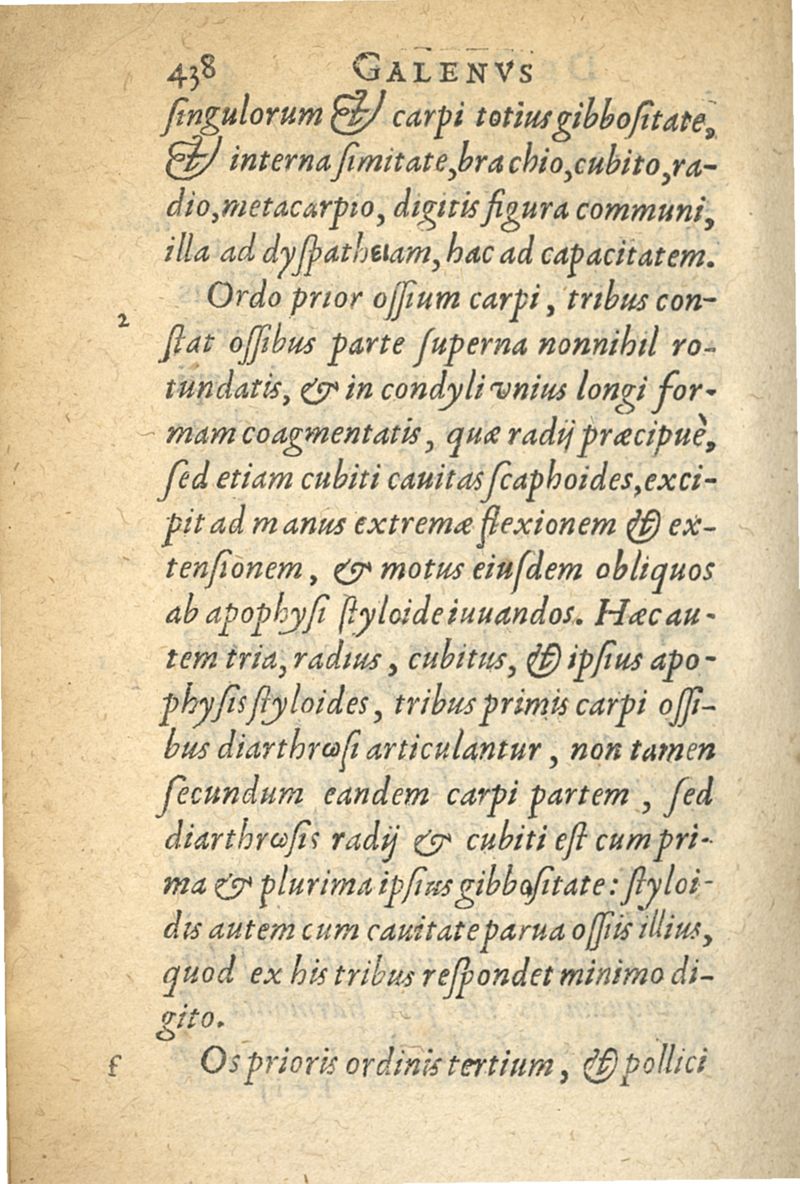 438 GALENVS
ſingulorum & carpi totius gibboſitate,
& interna ſimitate, brachio, cubito, ra-
dio, metacarpio, digitis figura communi,
illa ad dyſpatheiam, hac ad capacitatem.
Ordo prior oſſium carpi, tribus con-
2
ſtat oſſibus parte ſuperna nonnihil ro-
tundatis, & in condyli vnius longi for-
mam coagmentatis, quæ radij præcipuè,
ſed etiam cubiti cauitas ſcaphoides, exci-
pit ad manus extremæ flexionem & ex-
tenſionem, & motus eiuſdem obliquos
ab apophyſi ſtyloide iuuandos. Hæc au-
tem tria, radius, cubitus, & ipſius apo-
phyſis ſtyloides, tribus primis carpi oſſi-
bus diarthrωſi articulantur, non tamen
ſecundum eandem carpi partem, ſed
diarthrωſis radij & cubiti eſt cum pri-
ma & plurima ipſius gibboſitate: ſtyloi-
dis autem cum cauitate parua oſſiis illius,
quod ex his tribus reſpondet minimo di-
gito.
f Os prioris ordinis tertium, & pollici